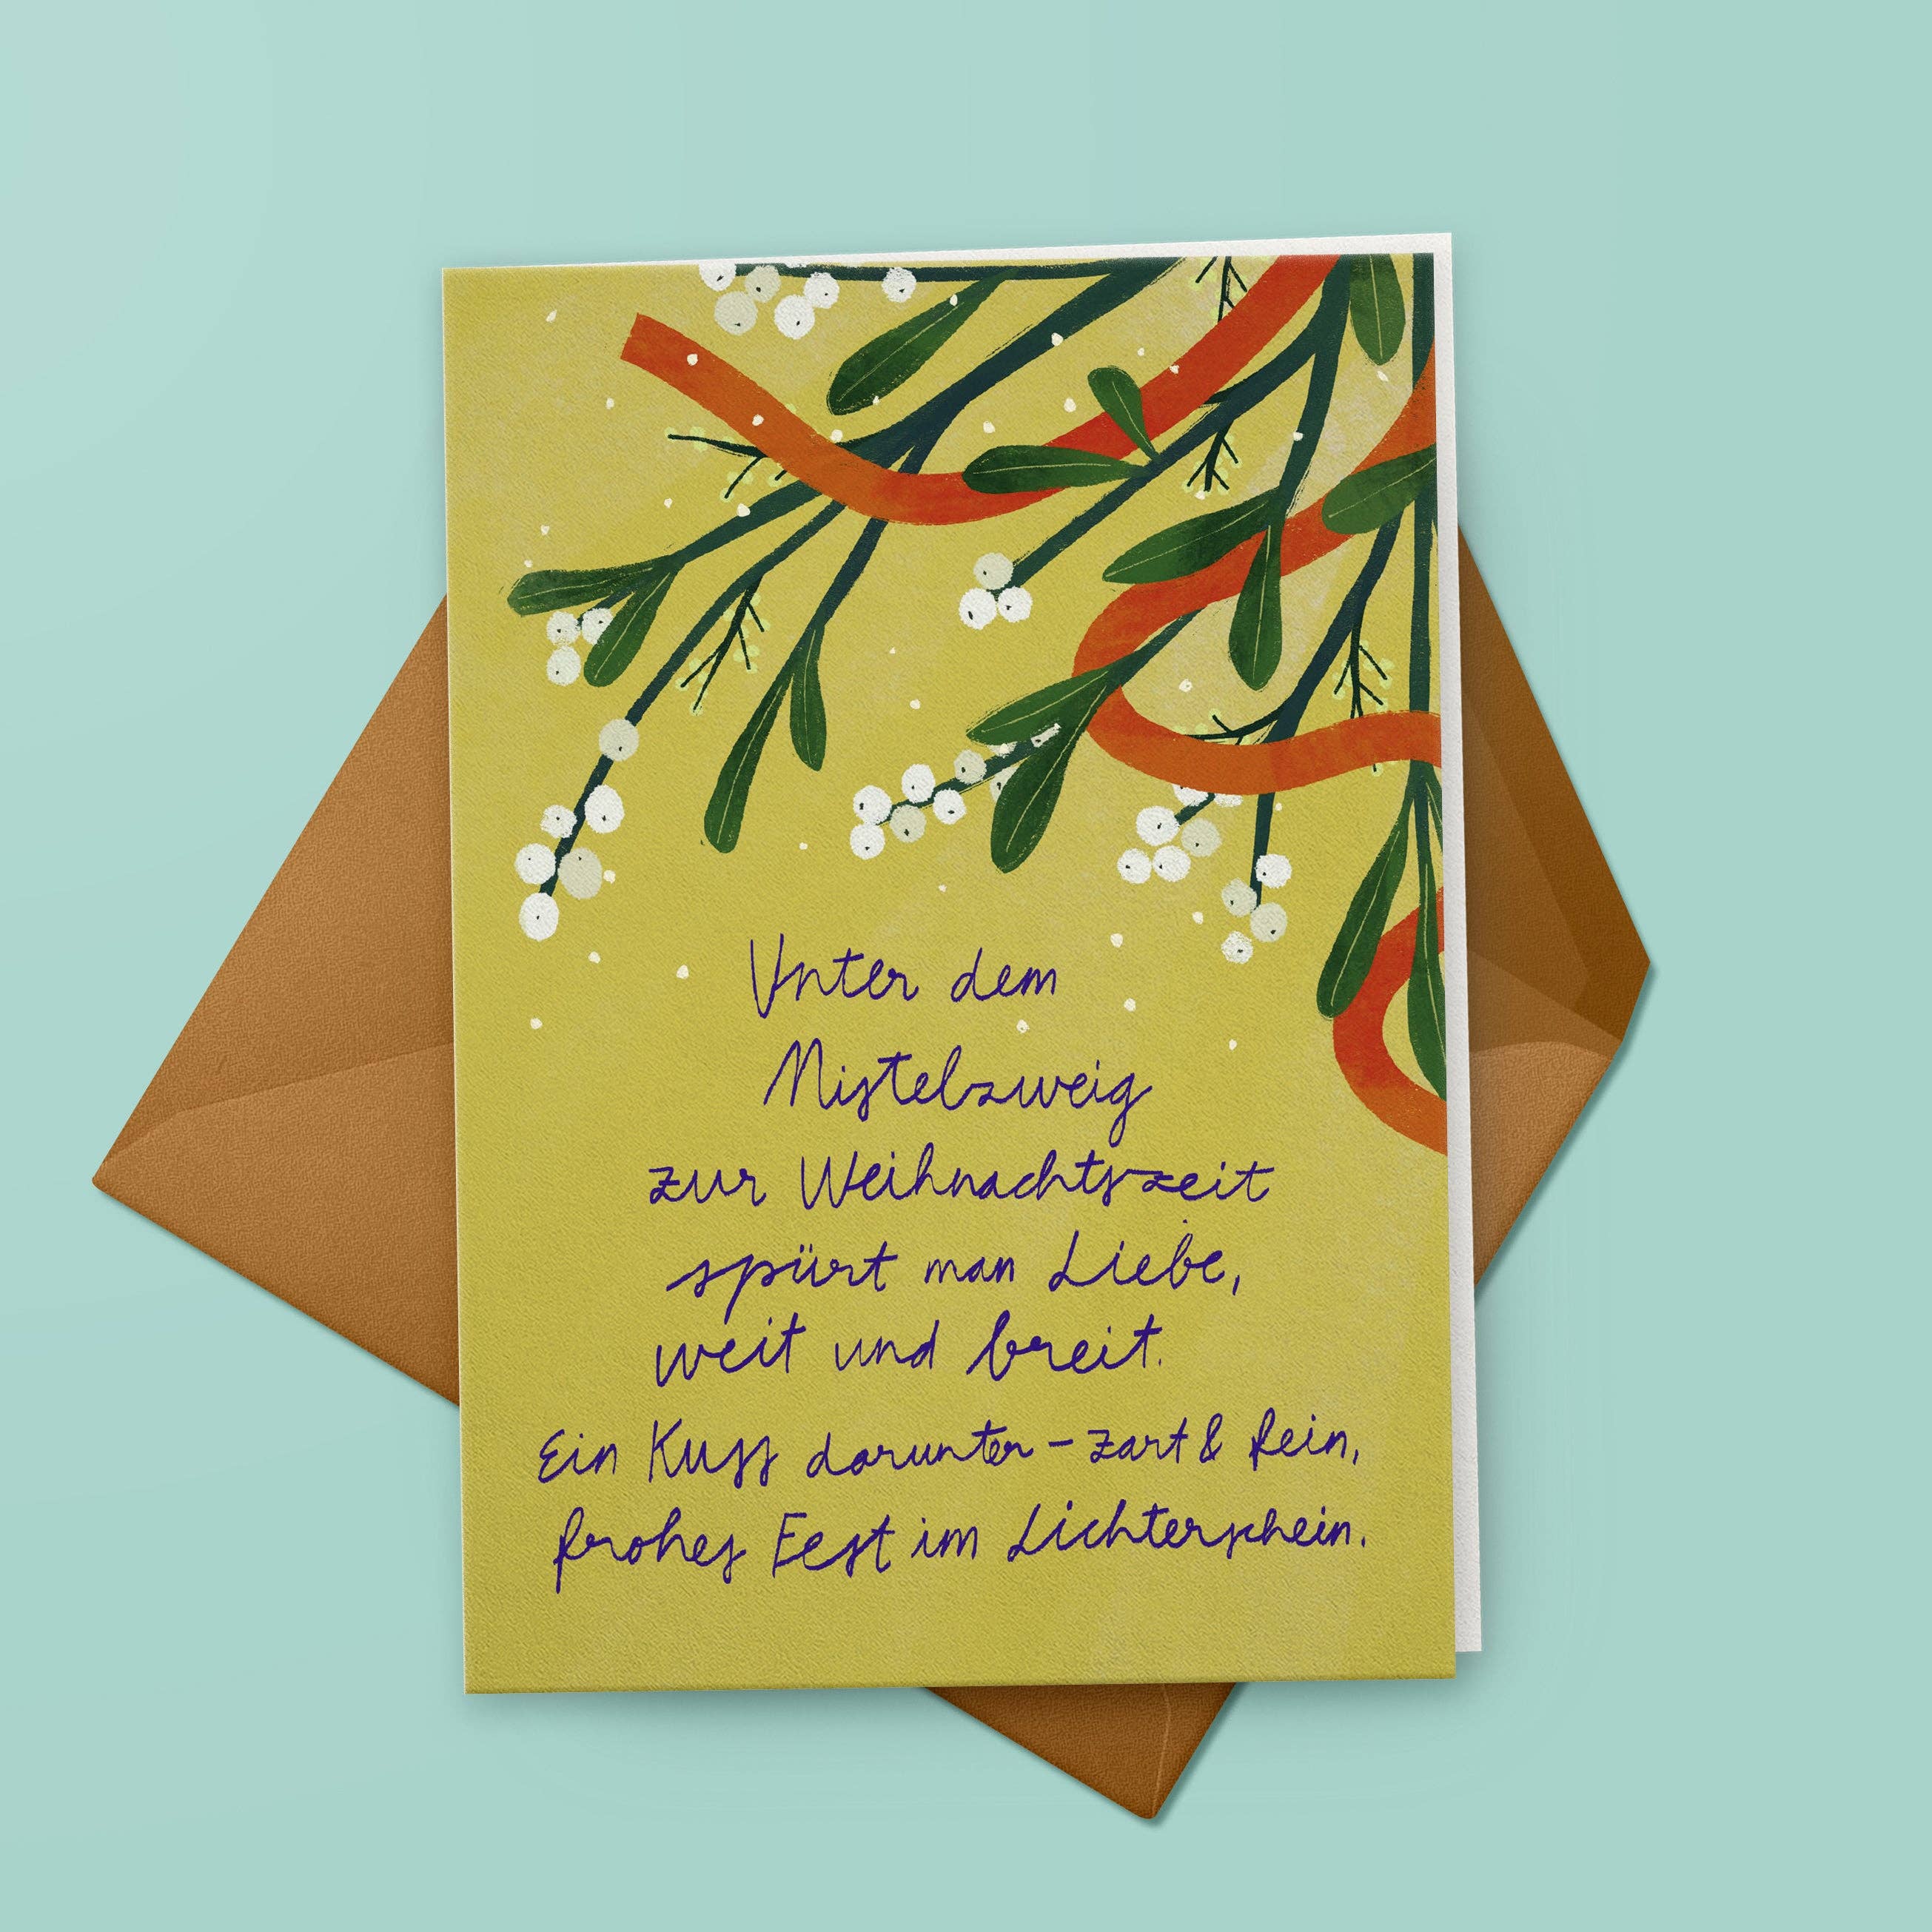 Unter dem
Mistelzweig
zur Weihnachtszeit
spürt man Liebe,
weit und breit.
Ein Kuss darunter - zart & fein,
frohes Fest im Lichterschein.